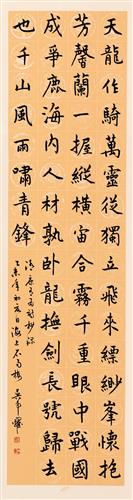 天龍作騎萬靈從獨立飛來縹緲峯懷抱
芳馨蘭一握縱橫宙合霧千重眼中戰國
成爭鹿海內人材孰臥龍撫劍長號歸去
也千山風雨嘯青鋒